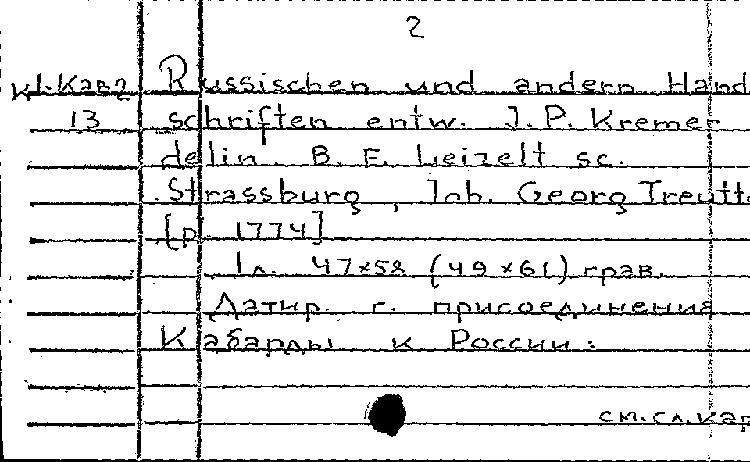 2
Russischen und andern Hand
13 schriften entw. J. P. Kremer
delin. B. E. Leizelt sc.
Strassburg, Joh. Georg Treutt
[p. 1774]
1 л. 47×58 (49×61) грав.
Датир. г. присоединения
Кабарды к России.
см. сл. кар